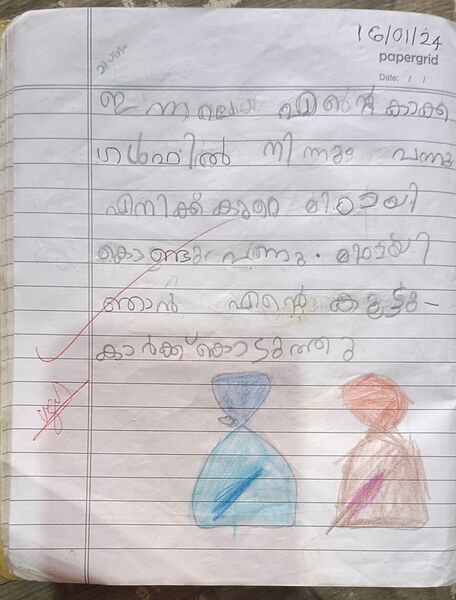 16/01/24
papergrid
Date: / /
ഇന്നലെ എൻ്റെ കാക്ക
ഗൾഫിൽ നിന്നും വന്നു
എനിക്ക് കുറെ മിഠായി
കൊണ്ടു വന്നു. മിഠായി
ഞാൻ എൻ്റെ കൂട്ടു-
കാർക്ക് കൊടുത്തു